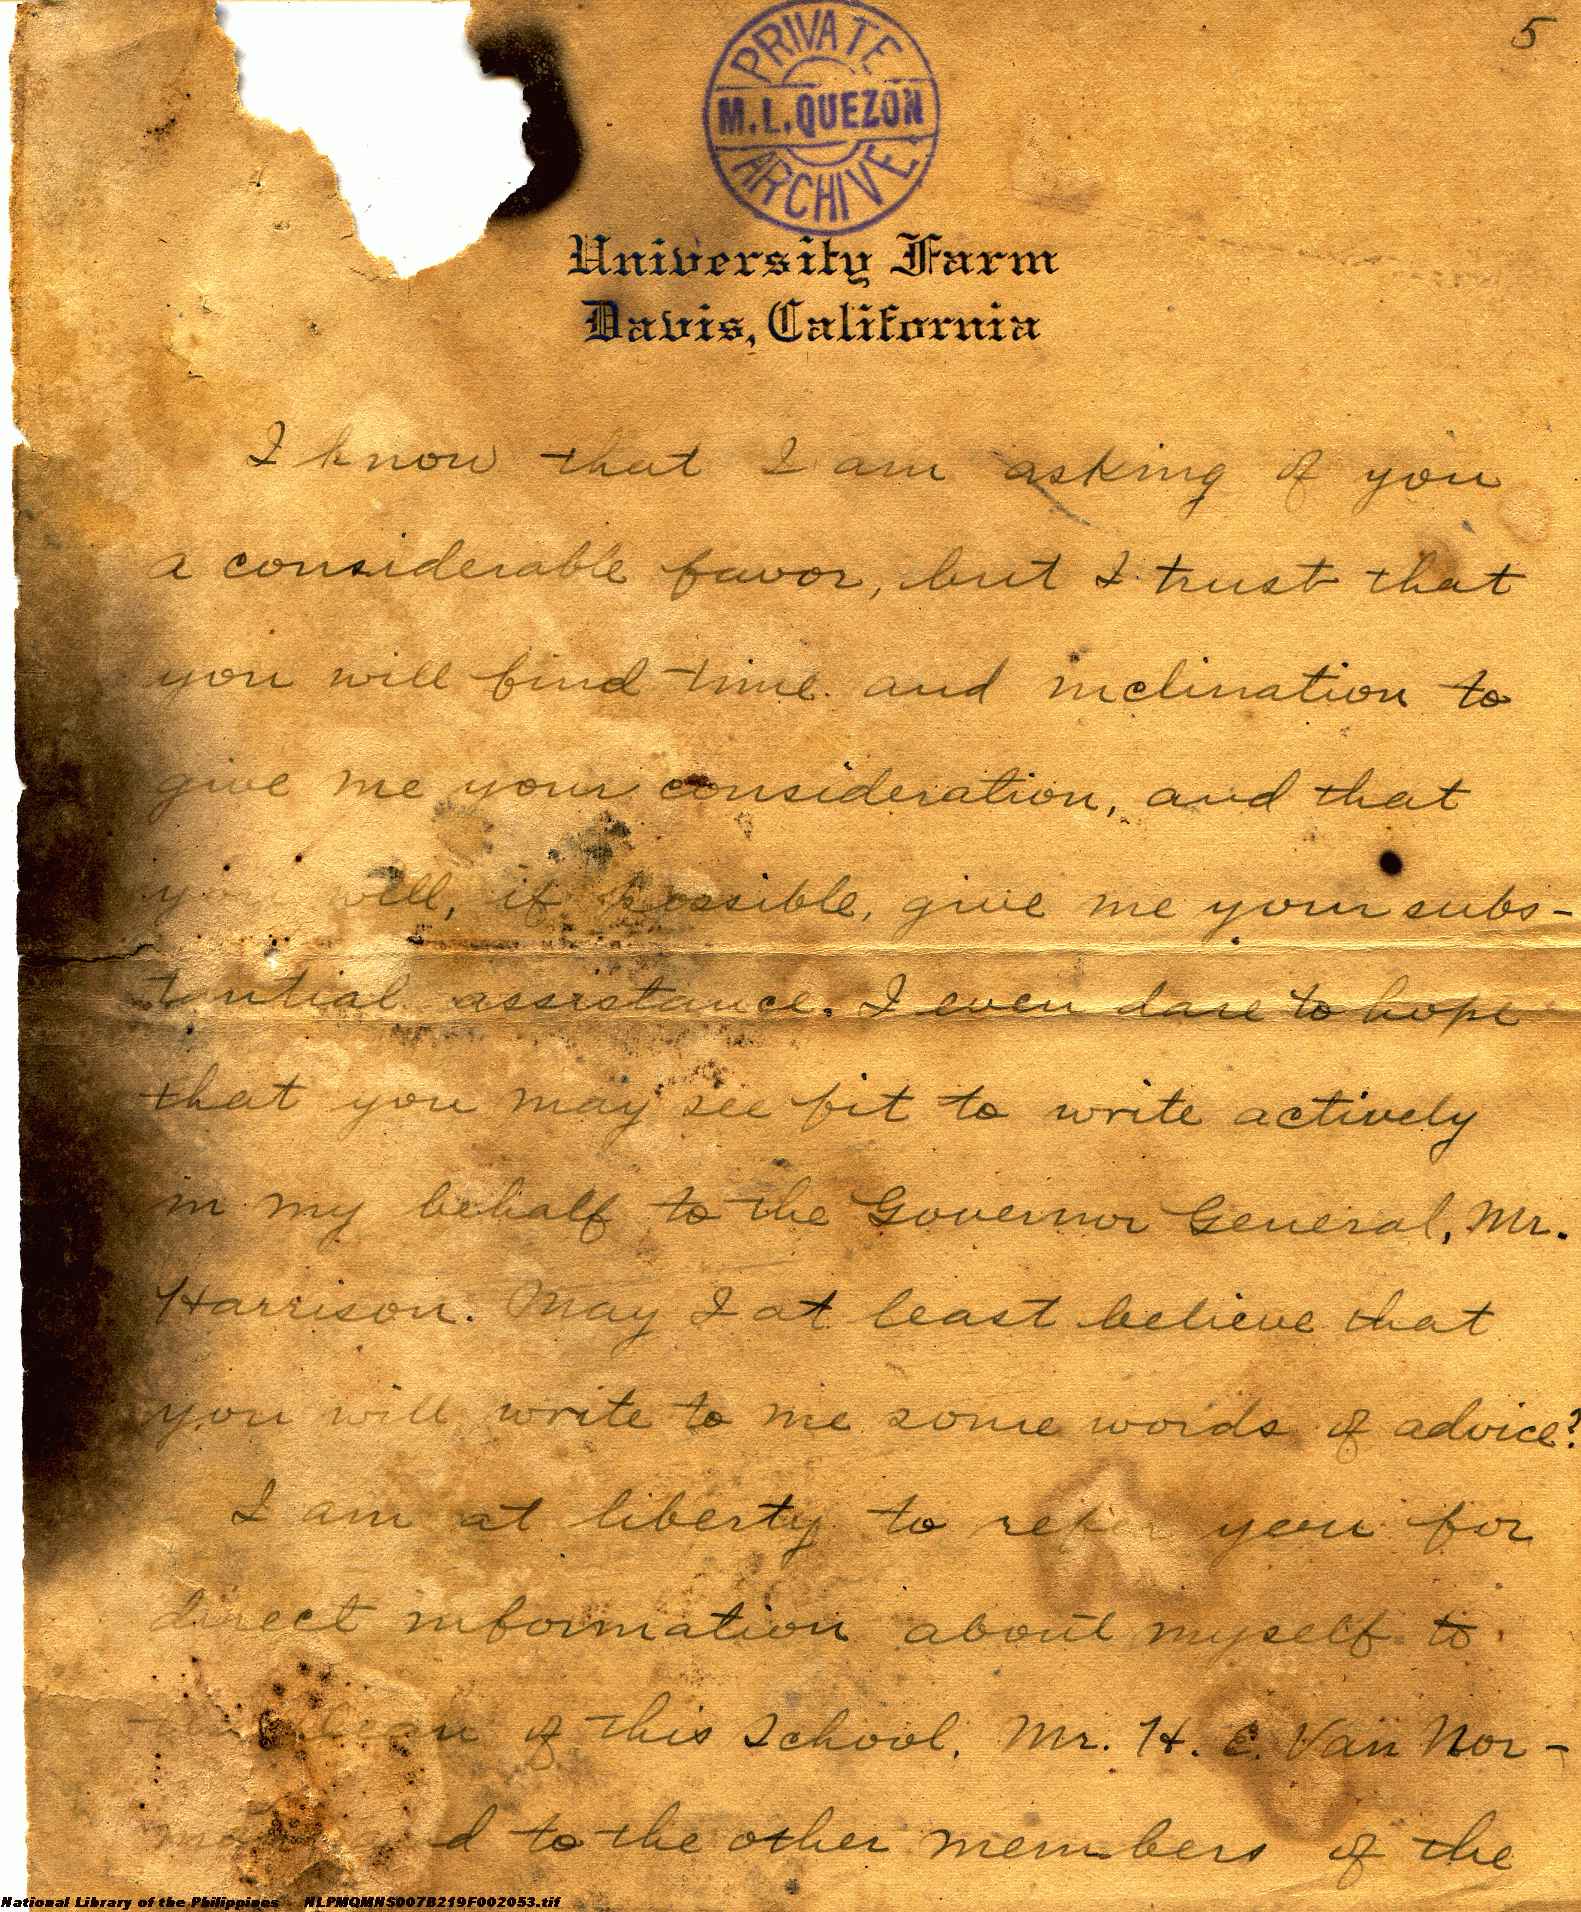 5
PRIVATE
M. L. QUEZON
ARCHIVE
University Farm
Davis, California
I know that I am asking of you
a considerable favor, but I trust that
you will find time and inclination to
give me your consideration, and that
you will, if possible, give me your subs-
tantial assistance. I even dare to hope
that you may see fit to write actively
in my behalf to the Governor General, Mr.
Harrison. May I at least believe that
you will write to me some words of advice?
I am at liberty to refer you for
direct information about myself to
the Dean of this School, Mr. H. E. Van Nor-
man, and to the other members of the
National Library of the Philippines NLPMQMNS007B219F002053.tif